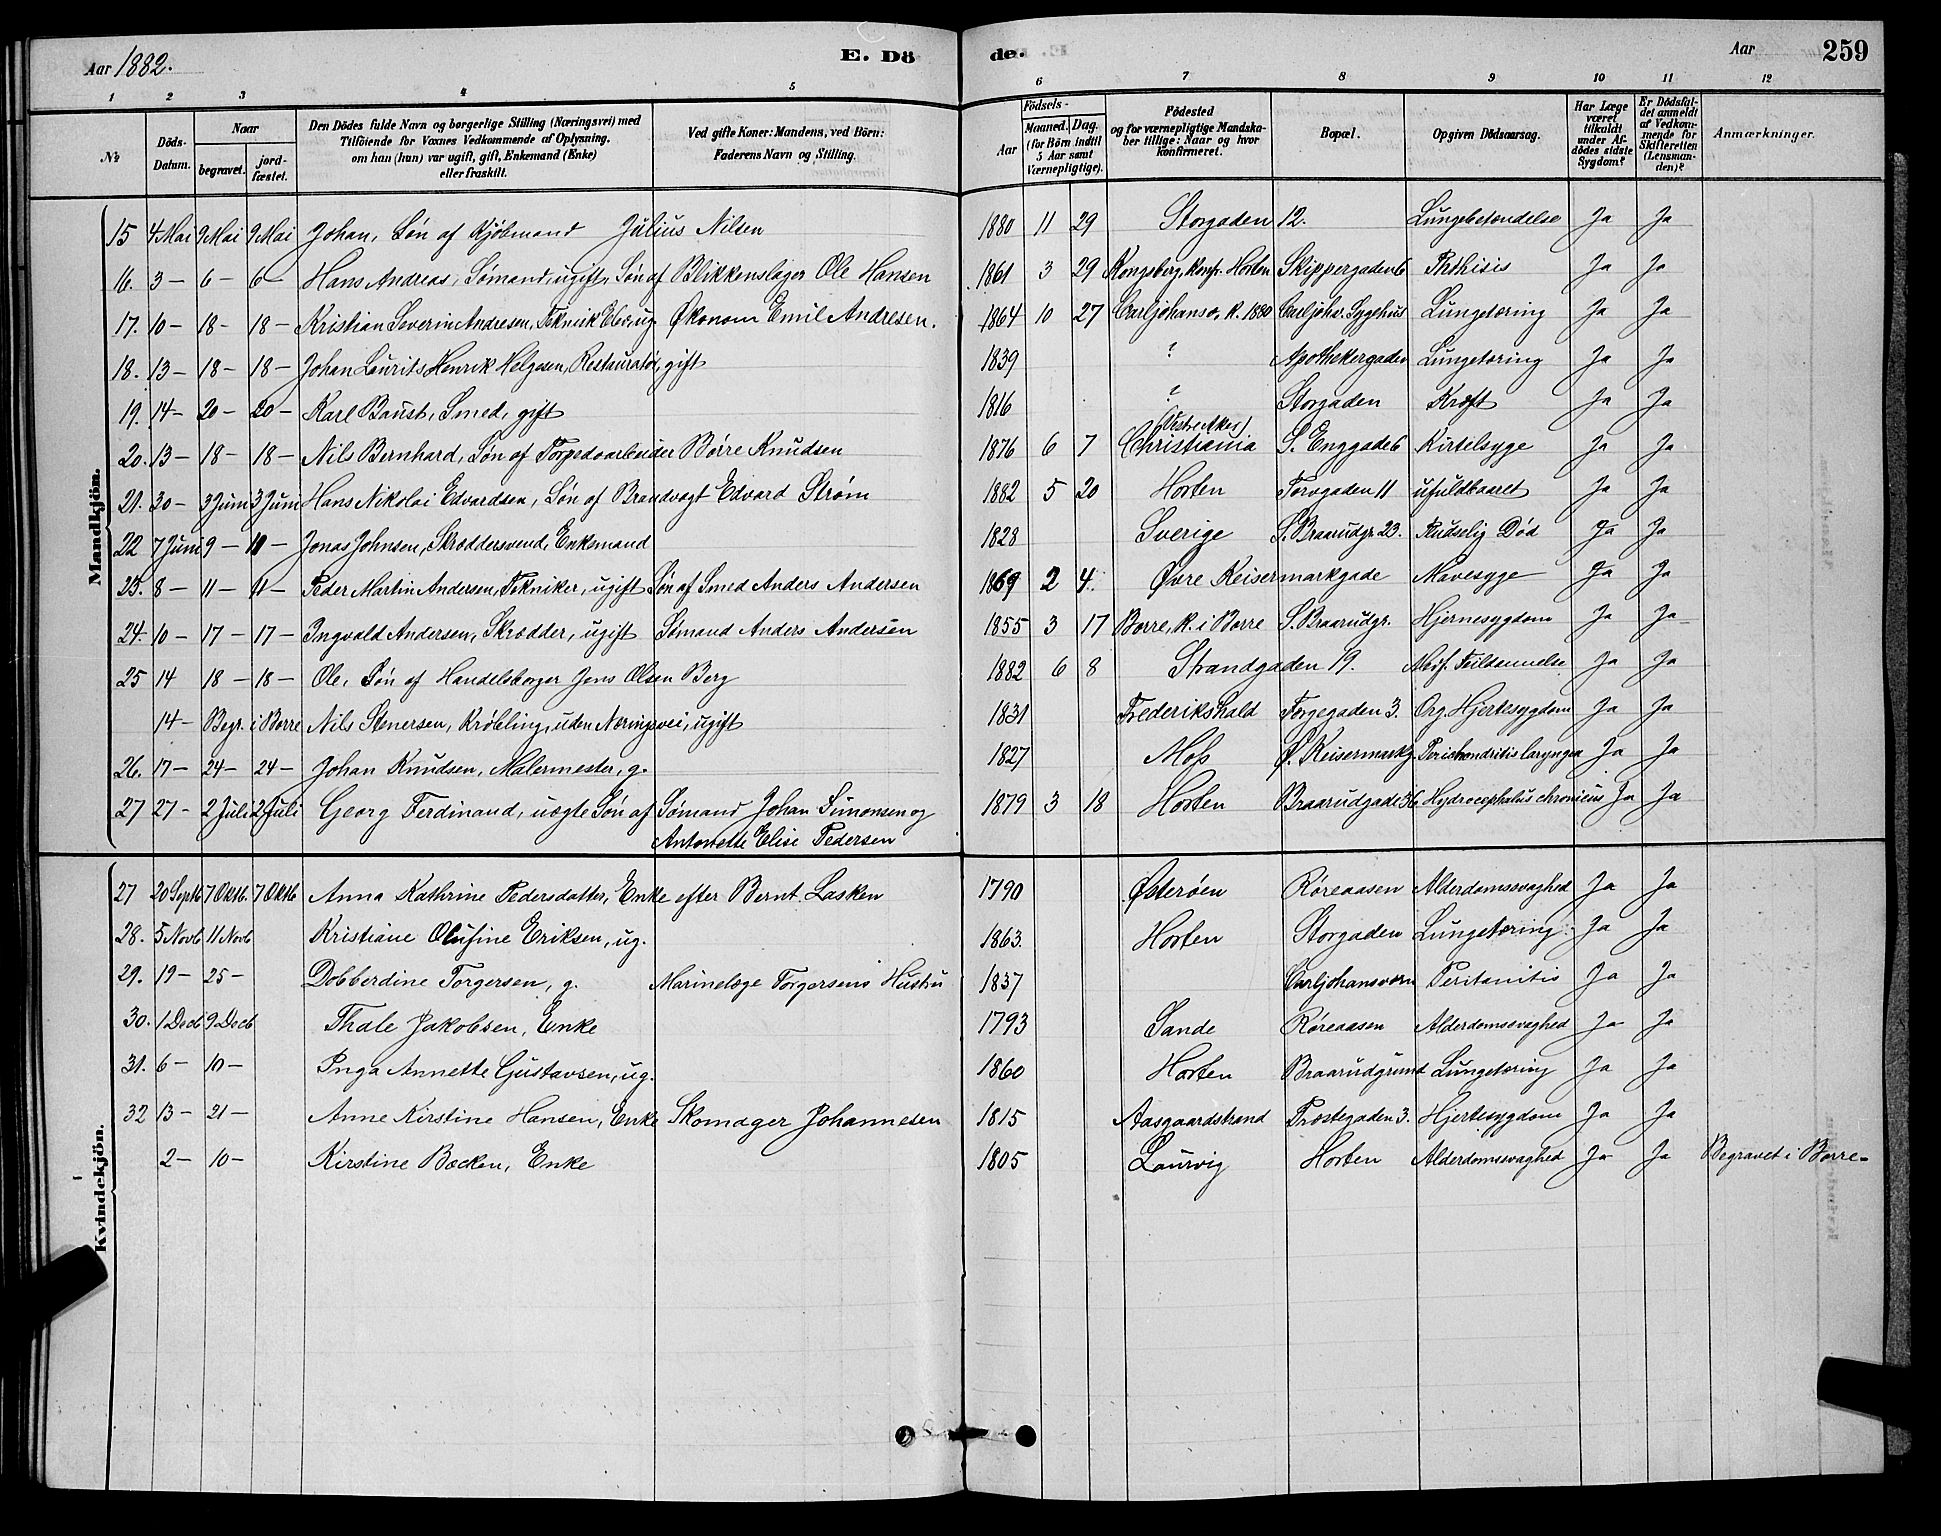 Aar 1882.
E. Dö
de.
Aar
259
1 2 3 4 5 6 7 8 9 10 11 12
№
Döds-Datum.
Naar
begravet.
jord-fæstet.
Den Dödes fulde Navn og borgerlige Stilling (Næringsvei) med
Tilföiende for Voxnes Vedkommende af Oplysning,
om han (hun) var ugift, gift, Enkemand (Enke)
eller fraskilt.
Ved gifte Koner: Mandens, ved Börn:
Faderens Navn og Stilling.
Födsels-
Aar
Maaned. Dag.
(for Börn indtil
5 Aar samt
Værnepligtige).
Födested
og for værnepligtige Mandska-
ber tillige: Naar og hvor
konfirmeret.
Bopæl.
Opgiven Dödsaarsag.
Har Læge
været
tilkaldt
under Af-
dödes sidste
Sygdom?
Er Dödsfal-
det anmeldt
af Vedkom-
mende for
Skifteretten
(Lensman-
den)?
Anmærkninger.
Mandkjön.
15 4 Mai 9 Mai 9 Mai Johan, Søn af Kjøbmand Julius Nilsen 1880 11 29 Storgaden 12. Lungebetændelse Ja Ja
16. 3 – 6 – 6 – Hans Andreas, Sømand, ugift, Søn af Blikkenslager Ole Hansen 1861 3 29 Kongsberg, konf. Horten Skippergaden 6 Phthisis Ja Ja
17. 10 – 18 – 18 – Kristian Severin Andresen, Teknisk Elev, ug. Økonom Emil Andresen. 1864 10 27 Carljohansv. k. 1880 Carljohv. Sygehus Lungetæring Ja Ja
18. 13 – 18 – 18 – Johan Laurits Henrik Helgesen, Restauratør, gift 1839 ? Apothekergaden Lungetæring Ja Ja
19. 14 – 20 – 20 – Karl Baust, Smed, gift 1816 ? Storgaden Kræft Ja Ja
20. 13 – 18 – 18 – Nils Bernhard, Søn af Torpedoarbeider Børre Knudsen 1876 6 7 (Vestre Aker) Christiania S. Enggade 6 Kirtelsyge Ja Ja
21. 30 – 3 Juni 3 Juni Hans Nikolai Edvardsen, Søn af Brandvagt Edvard Strøm 1882 5 20 Horten Torvgaden 11 ufuldbaaret Ja Ja
22 7 Juni 9 – 10 – Jonas Johnsen, Skræddersvend, Enkemand 1828 S verige S. Braarudgr. 23. Pludselig Død Ja Ja
23. 8 – 11 – 11 – Peder Martin Andersen, Tekniker, ugift Søn af Smed Anders Andersen 1869 2 4. Øvre Keisermarkgade Mavesyge Ja Ja
24. 10 – 17 – 17 – Ingvald Andersen, Skrædder, ugift Sømand Anders Andersen 1855 3 17 Borre, k. i Borre S. Braarudgr. Hjernesygdom Ja Ja
25 14 18 – 18 – Ole, Søn af Handelsborger Jens Olsen Berg 1882 6 8 Strandgaden 19. Ja Ja
14 – Begr. i Borre Nils Stenersen, Krøbling, uden Næringsvei, ugift 1831 Frederikshald Torgegaden 3. Org. Hjertesygdom Ja Ja
26. 17 – 24 – 24 – Johan Knudsen, Malermester, g. 1827 Moss Ø. Keisermarkg. Perichondritis laryngea Ja Ja
27 27 – 2 Juli 2 Juli Georg Ferdinand, uægte Søn af Sømand Johan Simonsen og 1879 3 18 Horten Braarudgade 36 Hydrocephalus chronicus Ja Ja
Antonette Elise Pedersen
Kvindekjön.
27 20 Septb 7 Oktb. 7 Oktb Anna Kathrine Pedersdatter, Enke efter Bernt Lasken 1790 Østerøen Røreaasen Alderdomssvaghed Ja Ja
28. 5 Novb 11 Novb Kristiane Olufine Eriksen, ug. 1863. Horten Storgaden Lungetæring Ja Ja
29. 19 – 25 – Dobberdine Torgersen, g. Marinelæge Torgersens Hustru 1837 Carljohansværn Peritonitis Ja Ja
30. 1 Decb 9 Decb Thale Jakobsen, Enke 1793 Sande Røreaasen Alderdomssvaghed Ja Ja
31. 6 – 10 – Inga Annette Gustavsen, ug. 1860 Horten Braarudgrund Lungetæring Ja Ja
32 13 – 21 – Anne Kirstine Hansen, Enke Skomager Johannesen 1815 Aasgaardstrand Præstegaden 3. Hjertesygdom Ja Ja
2 – 10 – Kirstine Bæcken, Enke 1805 Laurvig Horten Alderdomssvaghed Ja Ja Begravet i Borre –